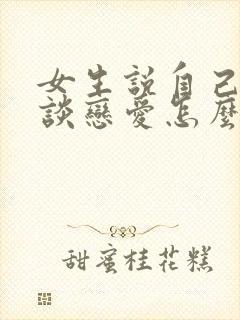 女生說自己
談戀愛怎麼
甜蜜桂花糕